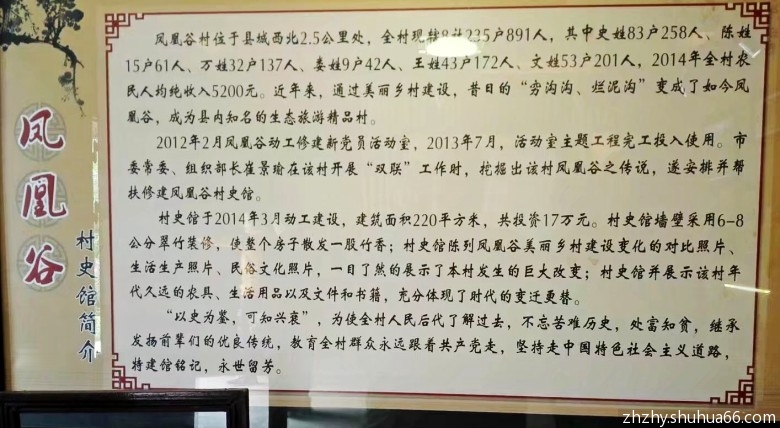 凤凰谷
村史馆简介
凤凰谷村位于县城西北2.5公里处，全村现辖8社235户891人，其中史姓83户258人、陈姓
15户61人、万姓32户137人、娄姓9户42人、王姓43户172人、文姓53户201人，2014年全村农
民人均纯收入5200元。近年来，通过美丽乡村建设，昔日的“穷沟沟、烂泥沟”变成了如今凤
凰谷，成为县内知名的生态旅游精品村。
2012年2月凤凰谷动工修建新党员活动室，2013年7月，活动室主题工程完工投入使用。市
委常委、组织部长崔景瑜在该村开展“双联”工作时，挖掘出该村凤凰谷之传说，遂安排并帮
扶修建凤凰谷村史馆。
村史馆于2014年3月动工建设，建筑面积220平方米，共投资17万元。村史馆墙壁采用6-8
公分翠竹装修，使整个房子散发一股竹香；村史馆陈列凤凰谷美丽乡村建设变化的对比照片、
生活生产照片、民俗文化照片，一目了然的展示了本村发生的巨大改变；村史馆并展示该村年
代久远的农具、生活用品以及文件和书籍，充分体现了时代的变迁更替。
“以史为鉴，可知兴衰”，为使全村人民后代了解过去，不忘苦难历史，处富知贫，继承
发扬前辈们的优良传统，教育全村群众永远跟着共产党走，坚持走中国特色社会主义道路，
特建馆铭记，永世留芳。
zhzhy.shuhua66.com